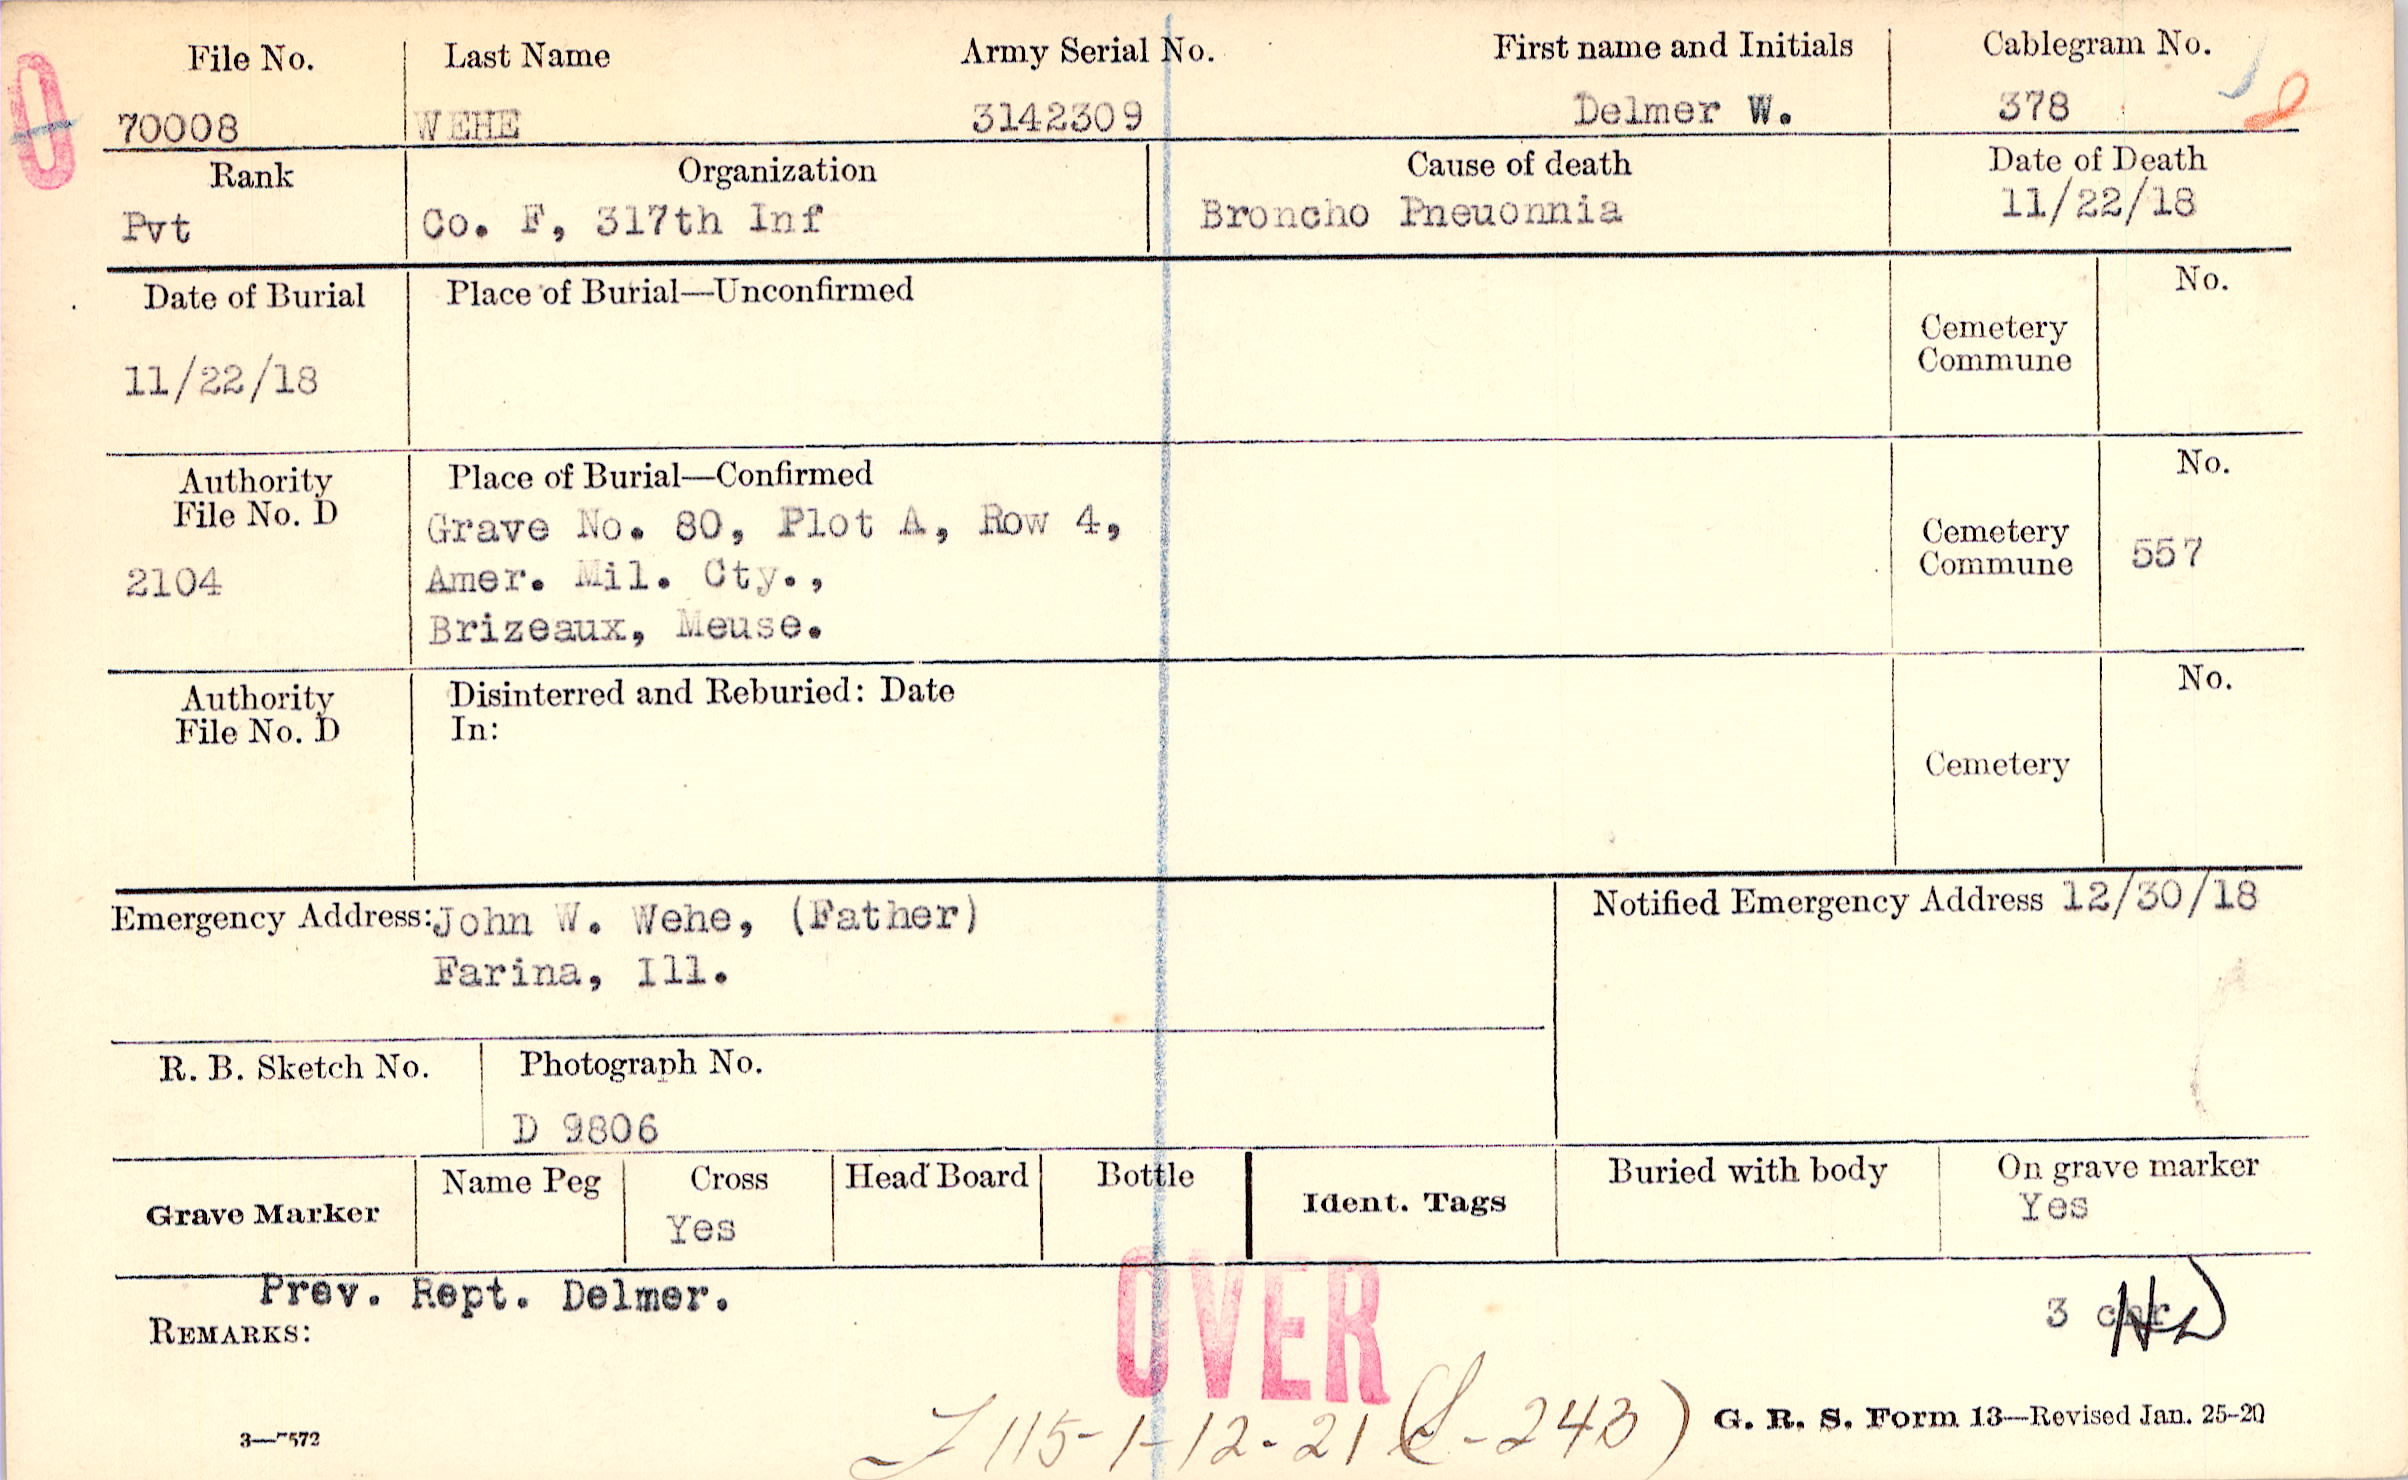 File No. Last Name Army Serial No. First name and Initials Cablegram No.
70008 WEHE 3142309 Delmer W. 378
Rank Organization Cause of death Date of Death
Pvt Co. F, 317th Inf Broncho Pneuonnia 11/22/18
Date of Burial Place of Burial—Unconfirmed No.
Cemetery
Commune
11/22/18
Authority Place of Burial—Confirmed No.
File No. D Grave No. 80, Plot A, Row 4, Cemetery
2104 Amer. Mil. Cty., Commune 557
Brizeaux, Meuse.
Authority Disinterred and Reburied: Date No.
File No. D In:
Cemetery
Emergency Address: John W. Wehe, (Father) Notified Emergency Address 12/30/18
Farina, Ill.
R. B. Sketch No. Photograph No.
D 9806
Grave Marker Name Peg Cross Head Board Bottle Ident. Tags Buried with body On grave marker
Yes Yes
Prev. Rept. Delmer.
REMARKS: OVER 3
115-1-12-21 -243)
G. R. S. Form 13—Revised Jan. 25-20